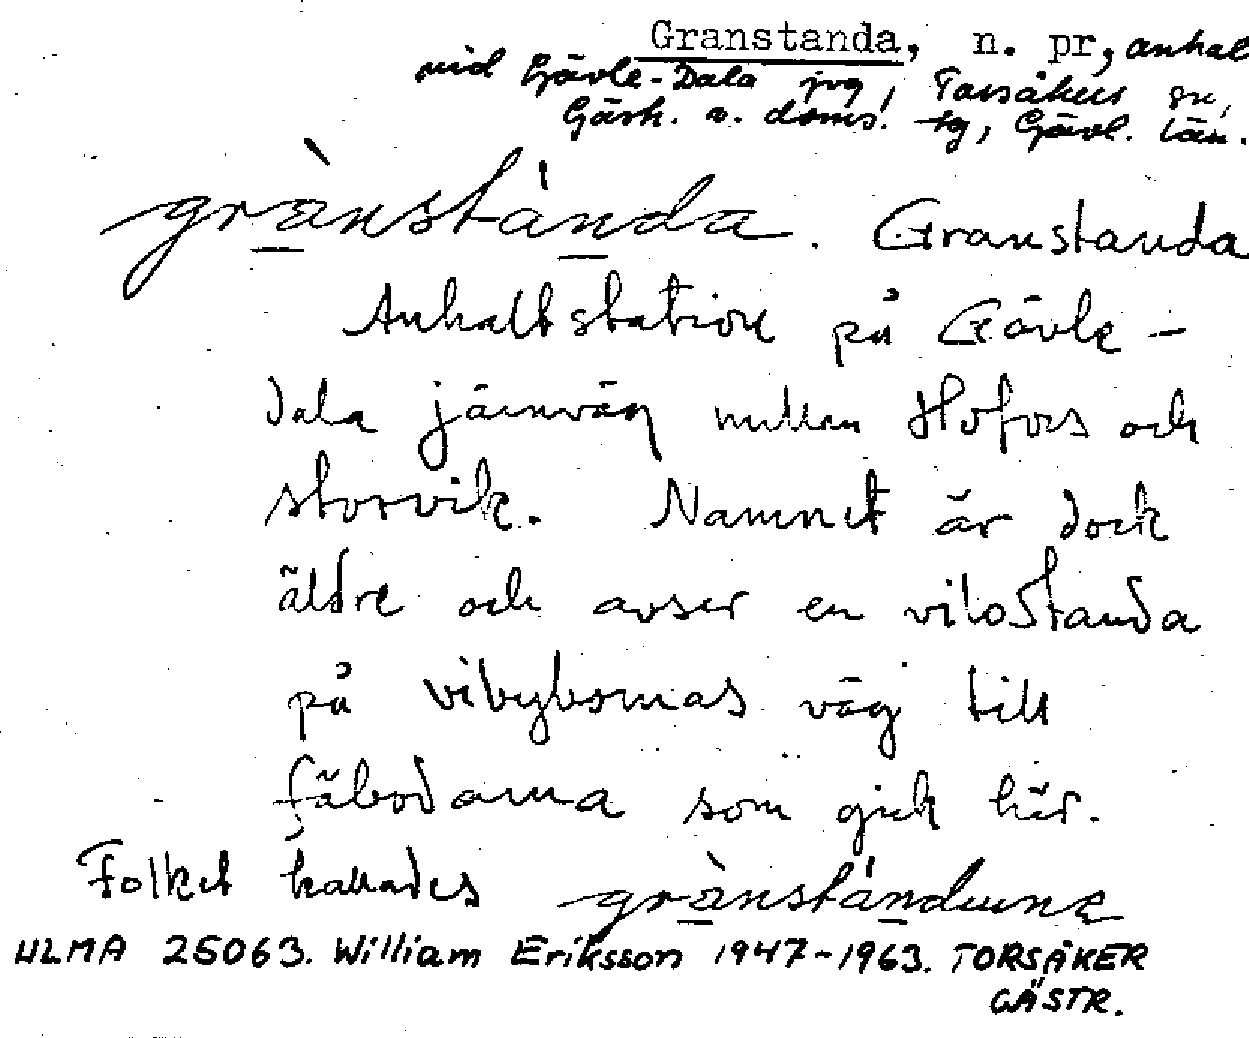 Granstanda, n. pr, anhal
vid Gävle-Dala jvg, Torsåkers sn,
Gästr. v. doms. tg, Gävl. län.
grànstánda. Granstanda
Anhaltstation på Gävle –
Dala järnväg mellan Hofors och
Storvik. Namnet är dock
äldre och avser en vilostanda
på vibybornas väg till
fäbodarna som gick här.
Folket kallades grànstándune
ULMA 25063. William Eriksson 1947-1963. TORSÅKER
GÄSTR.